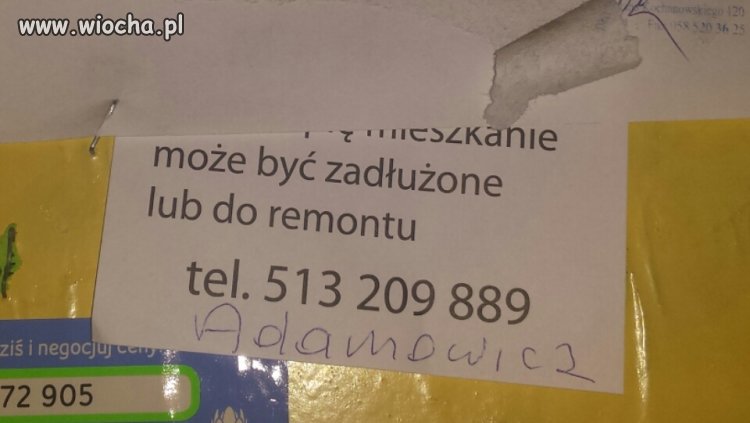 www.wiocha.pl
Kochanowskiego 120
058 520 36 25
mieszkanie
może być zadłużone
lub do remontu
tel. 513 209 889
Adamowicz
ziś i negocjuj ceny
72 905